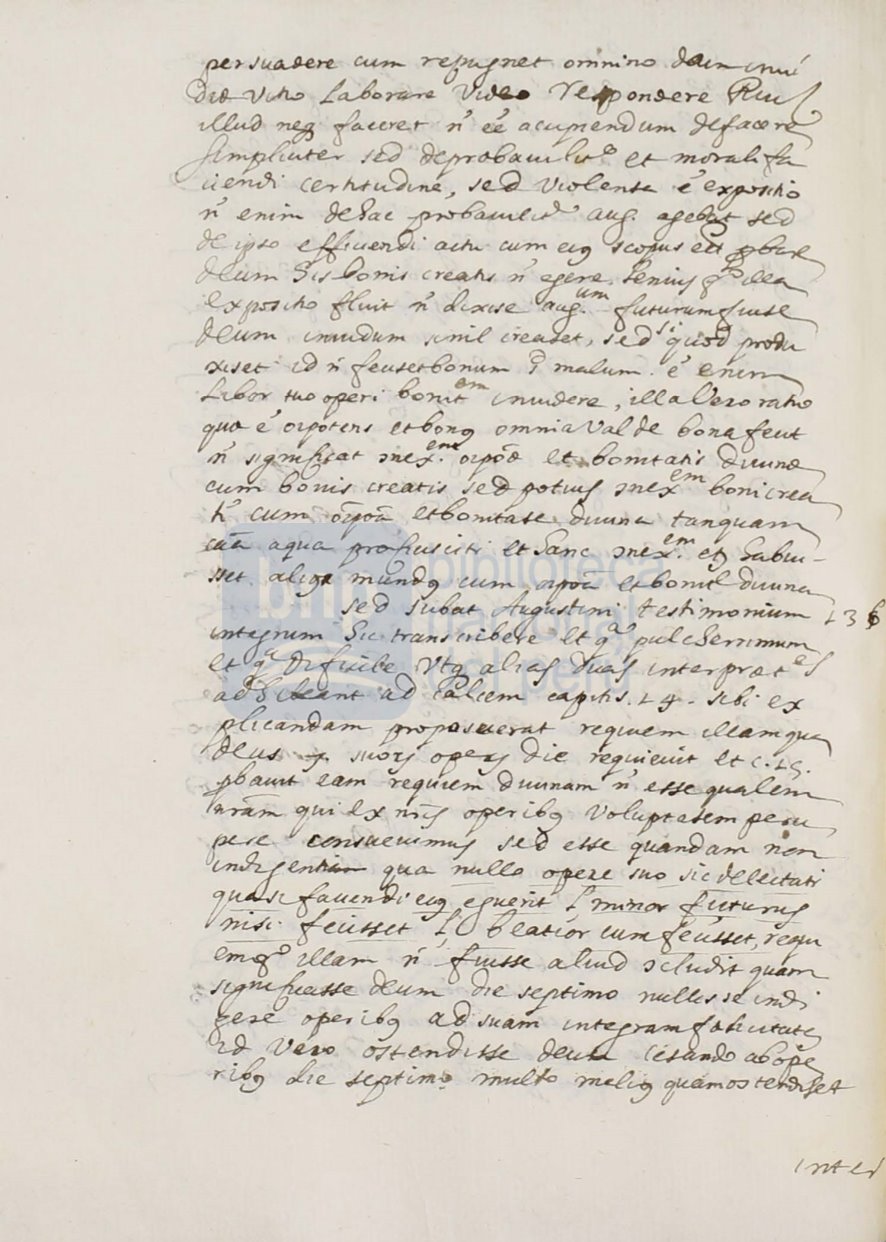 persuadere cum repugnet omnino deum invi
diæ vitio laborare video respondere Ruis
illud neq faceret ñ éé acupiendum de facere
simpliciter sed de probavilitᵉ et morali fa
ciendi certitudine, sed violenta é expositio
ñ enim de hac probavilitᵉ aug. agebat sed
de ipso efficiendi actu cum eiq scopus est pbare
deum his bonis creatis ñ egere. illa
expositio fluit ñ dixise aug.um futurum fuise
deum invidum si nil creaset, sed si quod produ
xiset id ñ feciset bonum malum. é enim
labor suo operi bonitem invidere, illa vero ratio
quæ é oipotens et bonq omnia valde bona fecit
ñ significat inex.em oipoæ et bonitatis divinæ
cum bonis creatis sed potius inexem boni crea
ti cum oipoa et bonitate divina tanquam
cua aqua et hanc inex.em eq habui-
sset aliqs mundq cum oipoa et bonite divina
sed iubat Augustini testimonium 136
integrum hic transcribere et qa pulcherrimum
et qa dificile vtq alias duas interpretes
adhibeant ad calcem capitis. 14. sibi ex
plicandam proposuerat requiem illam qua
deus 7. suorq operq die requievit et c. 15.
pbavit eam requiem divinam ñ esse qualem
nram qui ex nris operibq voluptatem peru
pere consuevimus sed esse quandam non
indigentiam qua nullo opere suo sic delectati
quasi faciendi eiq eguerit l minor futurus
nisi fecisset l beatior cum fecisset, requi
emq illam ñ fuisse aliud concludit quam
significasse deum die septimo nullis se indi
gere operibq ad suam integram fœlicitate
id vero ostendisse deum cesando ab ope
ribq die septimo multo meliq quam ostendiset
inter
biblioteca
nacional
del perú
bnp